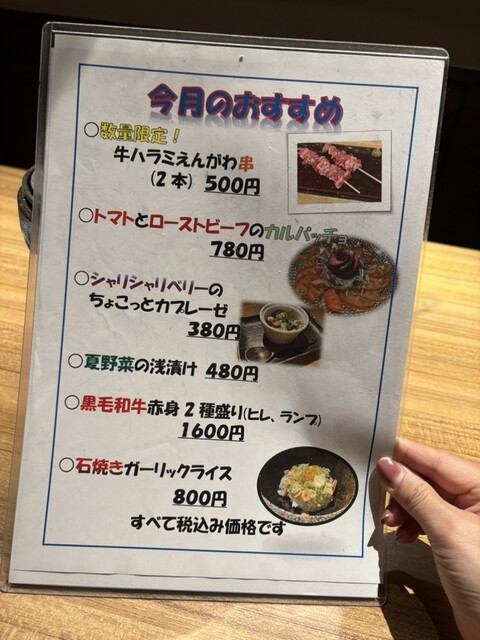 今月のおすすめ
○数量限定！
牛ハラミえんがわ串
(2本) 500円
○トマトとローストビーフのカルパッチョ
780円
○シャリシャリベリーの
ちょこっとカプレーゼ
380円
○夏野菜の浅漬け 480円
○黒毛和牛赤身2種盛り(ヒレ、ランプ)
1600円
○石焼きガーリックライス
800円
すべて税込み価格です